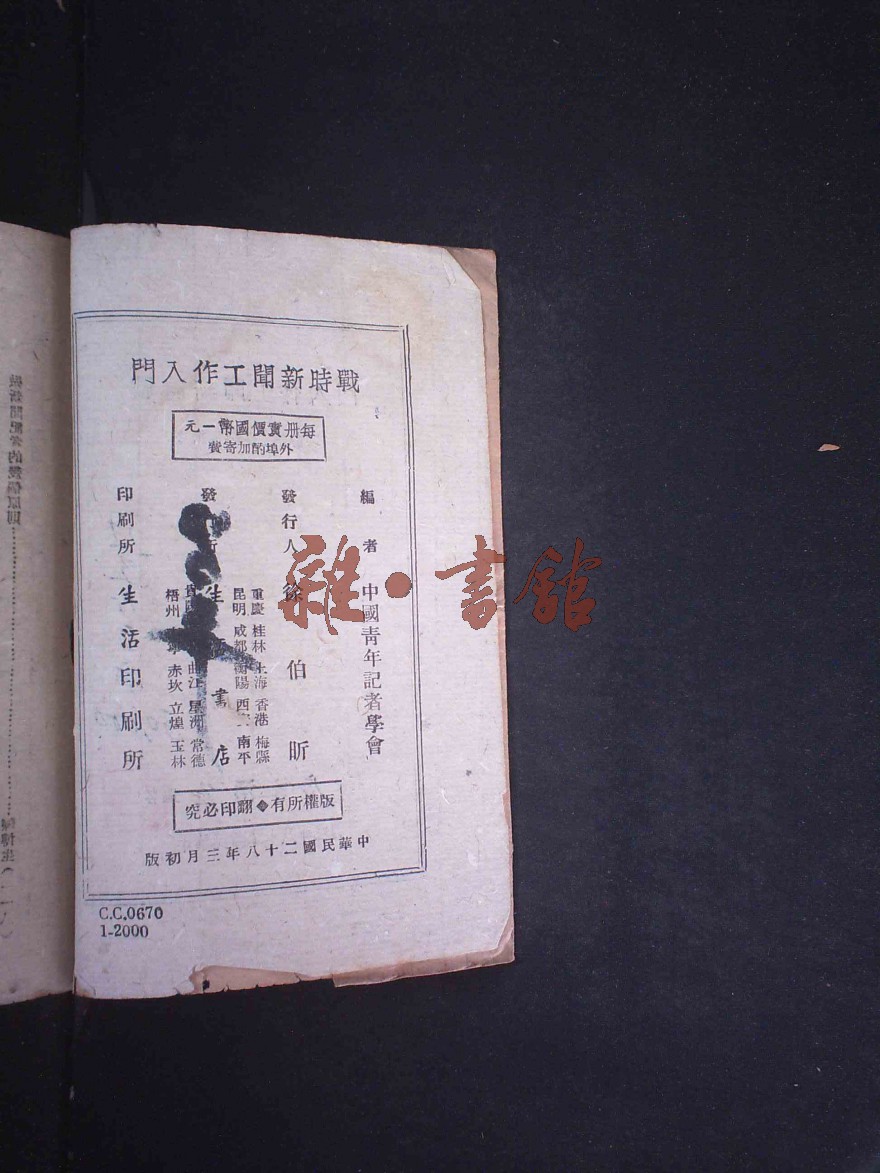 戰時新聞工作入門
每册實價國幣一元
外埠酌加寄費
編者 中國青年記者學會
發行人 徐伯昕
發 生 書店
重慶 桂林 上海 香港 梅縣
昆明 成都 衡陽 西 南平
曲江 星洲 常德
梧州 赤坎 立煌 玉林
印刷所 生活印刷所
版權所有 翻印必究
中華民國二十八年三月初版
C.C.0670
1-2000
雜·書館